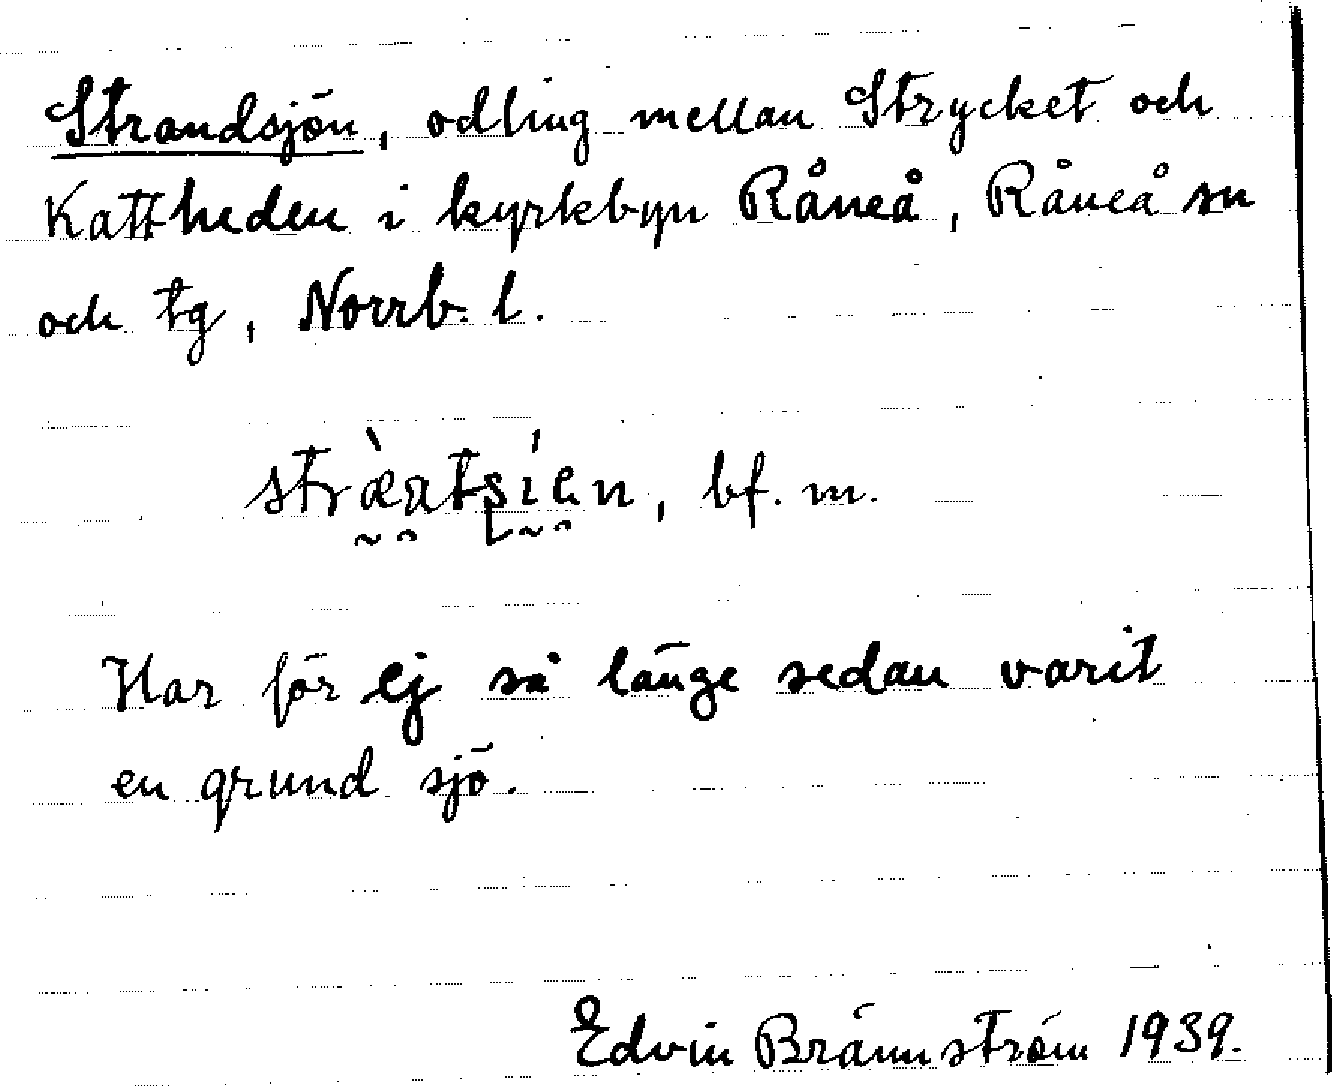 Strandsjön, odling mellan Strycket och
Kattheden i kyrkbyn Råneå, Råneå sn
och tg, Norrb. l.
bf. m.
Har för ej så länge sedan varit
en grund sjö.
Edvin Brännström 1939.